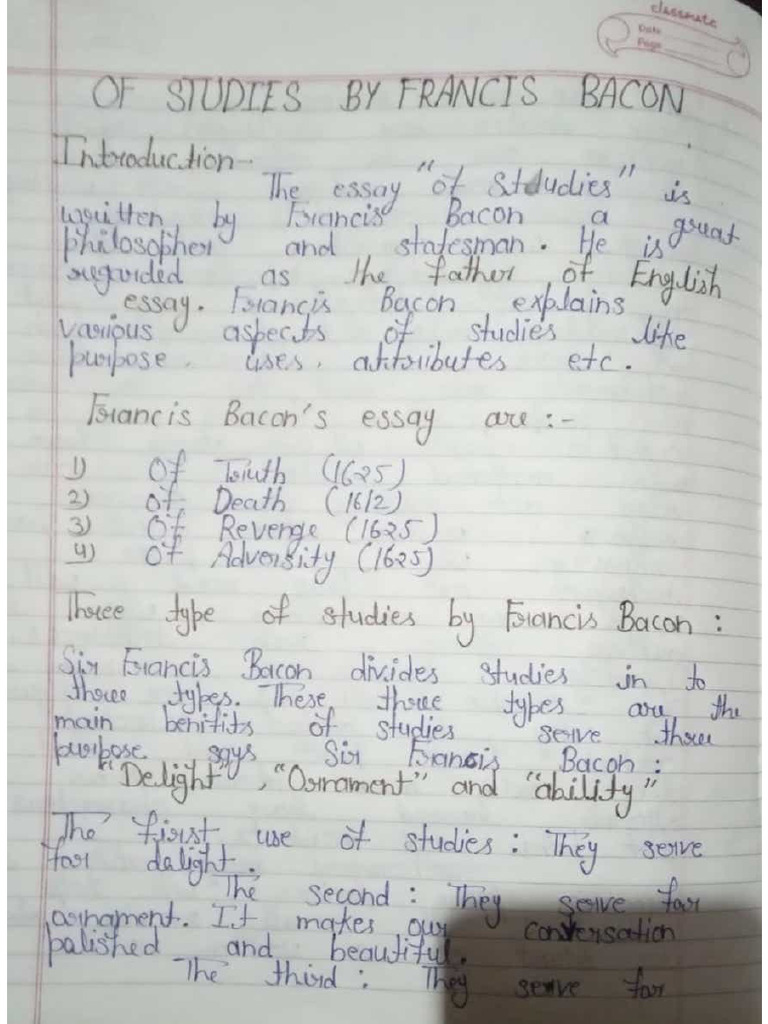 classmate
Date
Page
OF STUDIES BY FRANCIS BACON
Introduction-
The essay "of Stdudies" is
written by Francis Bacon a great
philosopher and statesman. He is
regarded as the father of English
essay. Francis Bacon explains
various aspects of studies like
purpose, uses, attributes etc.
Francis Bacon's essay are :-
1) Of Truth (1625)
2) Of Death (1612)
3) Of Revenge (1625)
4) Of Adversity (1625)
Three type of studies by Francis Bacon :
Sir Francis Bacon divides studies in to
three types. These three types are the
main benifits of studies serve three
purpose says Sir Francis Bacon :
"Delight", "Ornament" and "ability"
The first use of studies : They serve
for delight.
The second : They serve for
ornament. It makes our conversation
polished and beautiful.
The third : They serve for